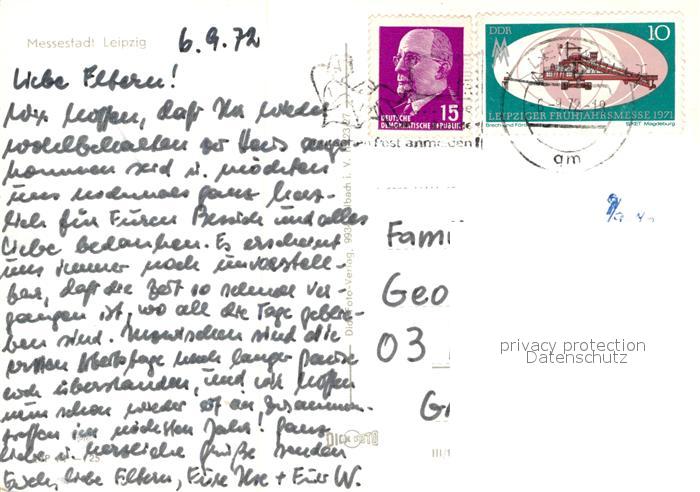 Messestadt Leipzig
6.9.72
Liebe Eltern!
Wir hoffen, daß Ihr wieder
wohlbehalten zu Haus ange-
kommen seid u. möchten
uns nochmals ganz herz-
lich für Euren Besuch und alles
Liebe bedanken. Es erscheint
uns immer noch unvorstell-
bar, daß die Zeit so schnell ver-
gangen ist, wo all die Tage geblie-
ben sind. Inzwischen sind die
ersten Arbeitstage nach langer Pause
auch überstanden, und wir hoffen
nun schon wieder auf ein Zusammen-
treffen im nächsten Jahr! Ganz
liebe u. herzliche Grüße senden
Euch, liebe Eltern, Eure Ilse + Euer W.
DEUTSCHE
DEMOKRATISCHE REPUBLIK
15
DDR
10
LEIPZIGER FRÜHJAHRSMESSE 1971
TAKRAF Magdeburg
Post anmelden!
am
Fami
Geo
03
privacy protection
Datenschutz
DICK FOTO
III/1